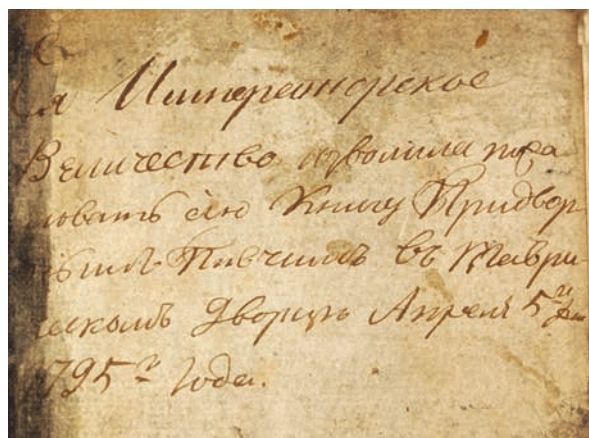 Ея Императорское
Величество изволила пожа
ловать сию Книгу Придвор
нымъ Пѣвчимъ въ Таври
ческомъ Дворцѣ Апреля 5го дня
1795го Года.